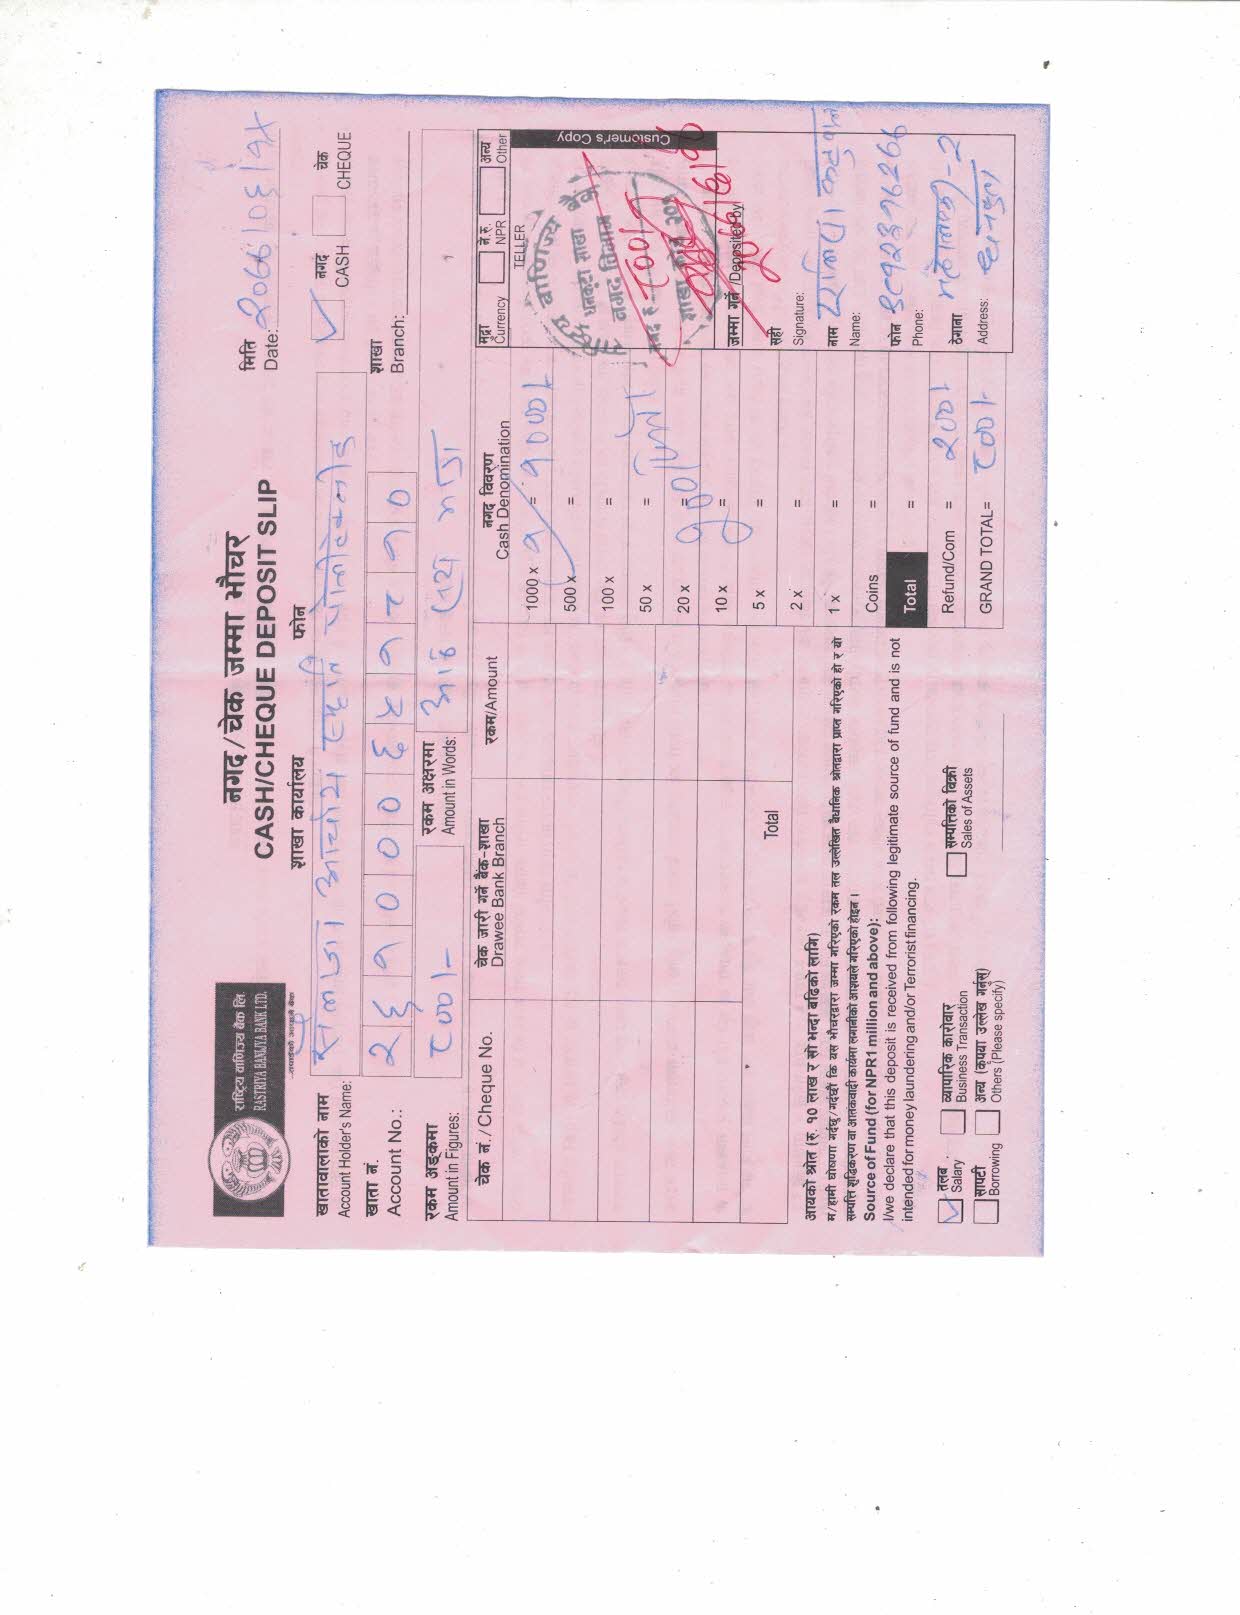 राष्ट्रिय वाणिज्य बैंक लि.
RASTRIYA BANIJYA BANK LTD.
...तपाईंको आफ्नै बैंक
नगद/चेक जम्मा भौचर
CASH/CHEQUE DEPOSIT SLIP
शाखा कार्यालय फोन
मिति
Date:
खातावालाको नाम
Account Holder's Name:
नगद
CASH
चेक
CHEQUE
खाता नं.
Account No.: २६१०००६५१८११०
शाखा
Branch:
रकम अङ्कमा
Amount in Figures: ८००।-
रकम अक्षरमा
Amount in Words: आठ सय मात्र
चेक नं./Cheque No.
चेक जारी गर्ने बैंक-शाखा
Drawee Bank Branch
रकम/Amount
Total
नगद विवरण
Cash Denomination
1000 x १ = १०००।-
500 x =
100 x =
50 x =
20 x =
10 x =
5 x =
2 x =
1 x =
Coins =
Total =
Refund/Com = २००।-
GRAND TOTAL= ८००।-
मुद्रा
Currency
ने.रु.
NPR
अन्य
Other
TELLER
Customer's Copy
वाणिज्य बैंक
धनकुटा शाखा
नगद
जम्मा गर्ने /Deposited by
सही
Signature:
नाम
Name:
फोन
Phone:
ठेगाना
Address:
धनकुटा
आयको श्रोत (रु. १० लाख र सो भन्दा बढिको लागि)
म/हामी घोषणा गर्दछु/गर्दछौं कि यस भौचरद्वारा जम्मा गरिएको रकम तल उल्लेखित बैधानिक श्रोतद्वारा प्राप्त गरिएको हो र यो
सम्पत्ति शुद्धिकरण वा आतंकवादी कार्यमा लगानीको आशयले गरिएको होइन ।
Source of Fund (for NPR1 million and above):
I/we declare that this deposit is received from following legitimate source of fund and is not
intended for money laundering and/or Terrorist financing.
तलब
Salary
व्यापारिक कारोवार
Business Transaction
सम्पत्तिको बिक्री
Sales of Assets
सापटी
Borrowing
अन्य (कृपया उल्लेख गर्नुस)
Others (Please specify)